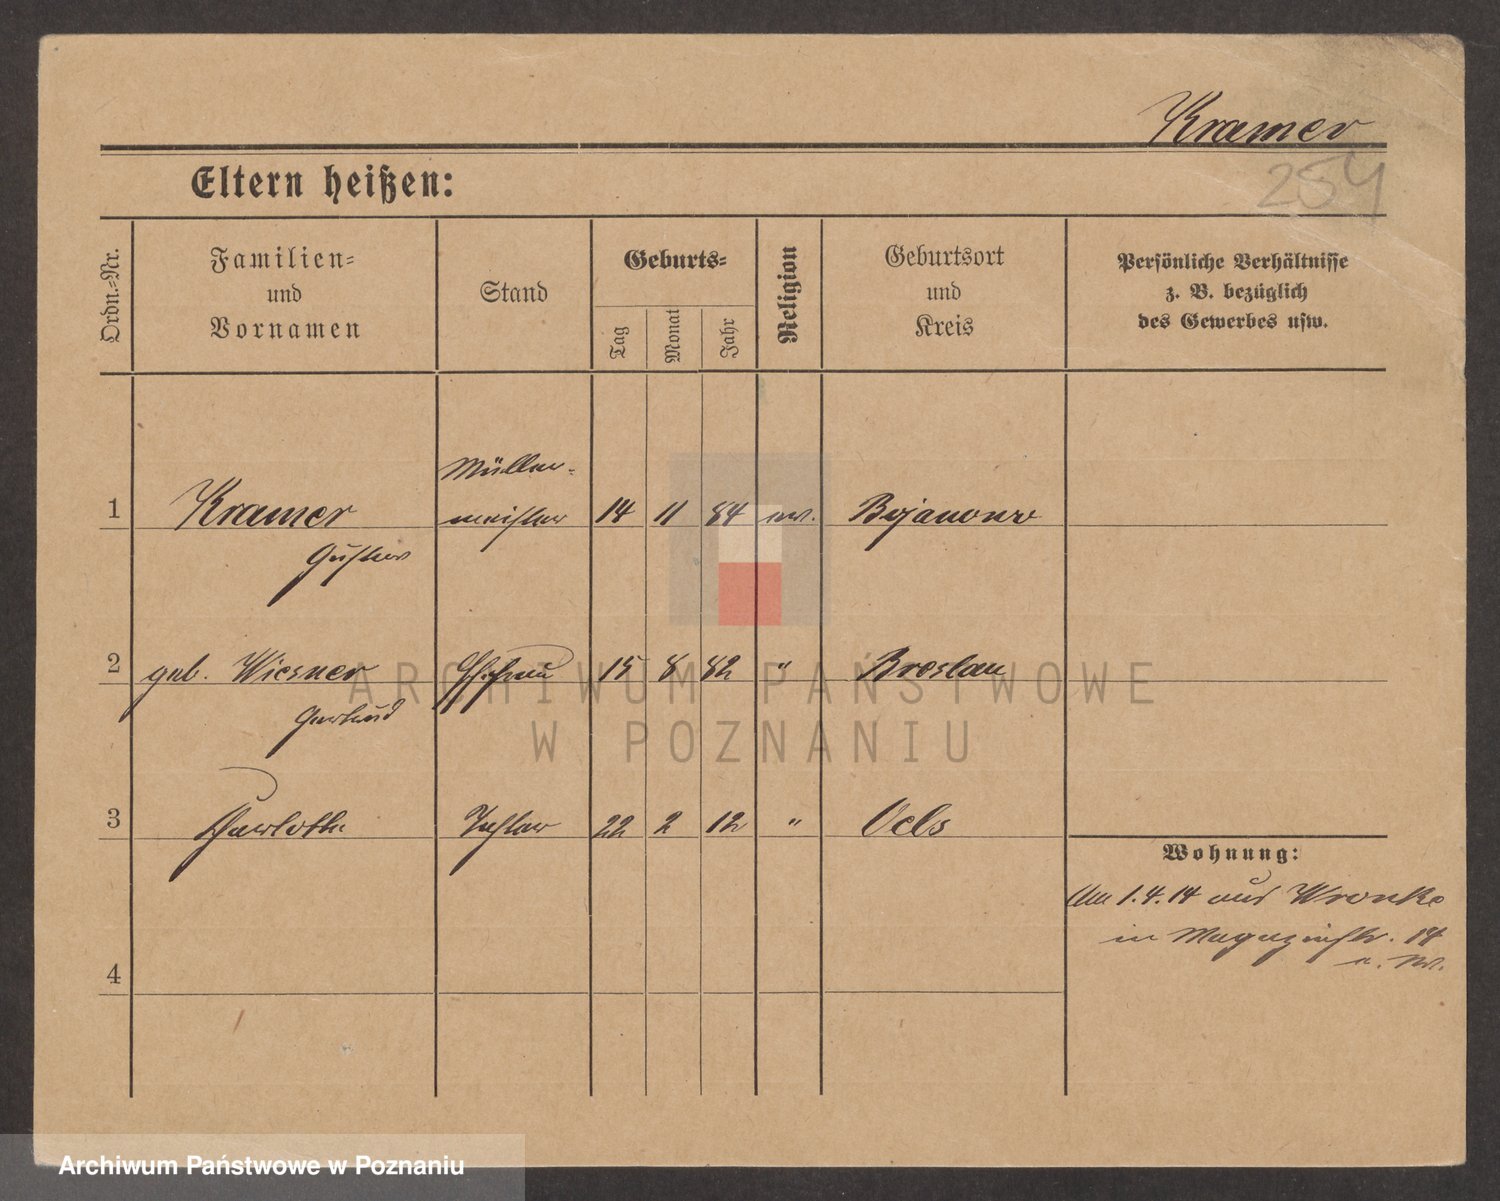 Kramer
254
Eltern heißen:
Ordn.-Nr.
Familien-
und
Vornamen
Stand
Geburts-
Tag
Monat
Jahr
Religion
Geburtsort
und
Kreis
Persönliche Verhältnisse
z. B. bezüglich
des Gewerbes usw.
Müller-
1 Kramer meister 14 11 84 ev. Bojanowo
Gustav
2 geb. Wiesner Ehefrau 15 8 82 " Breslau
Gertrud
3 Tochter 22 2 12 " Oels
Wohnung:
Am 1.4.14 aus Wronke
in Magazinstr. 14
4
ARCHIWUM PAŃSTWOWE
W POZNANIU
Archiwum Państwowe w Poznaniu